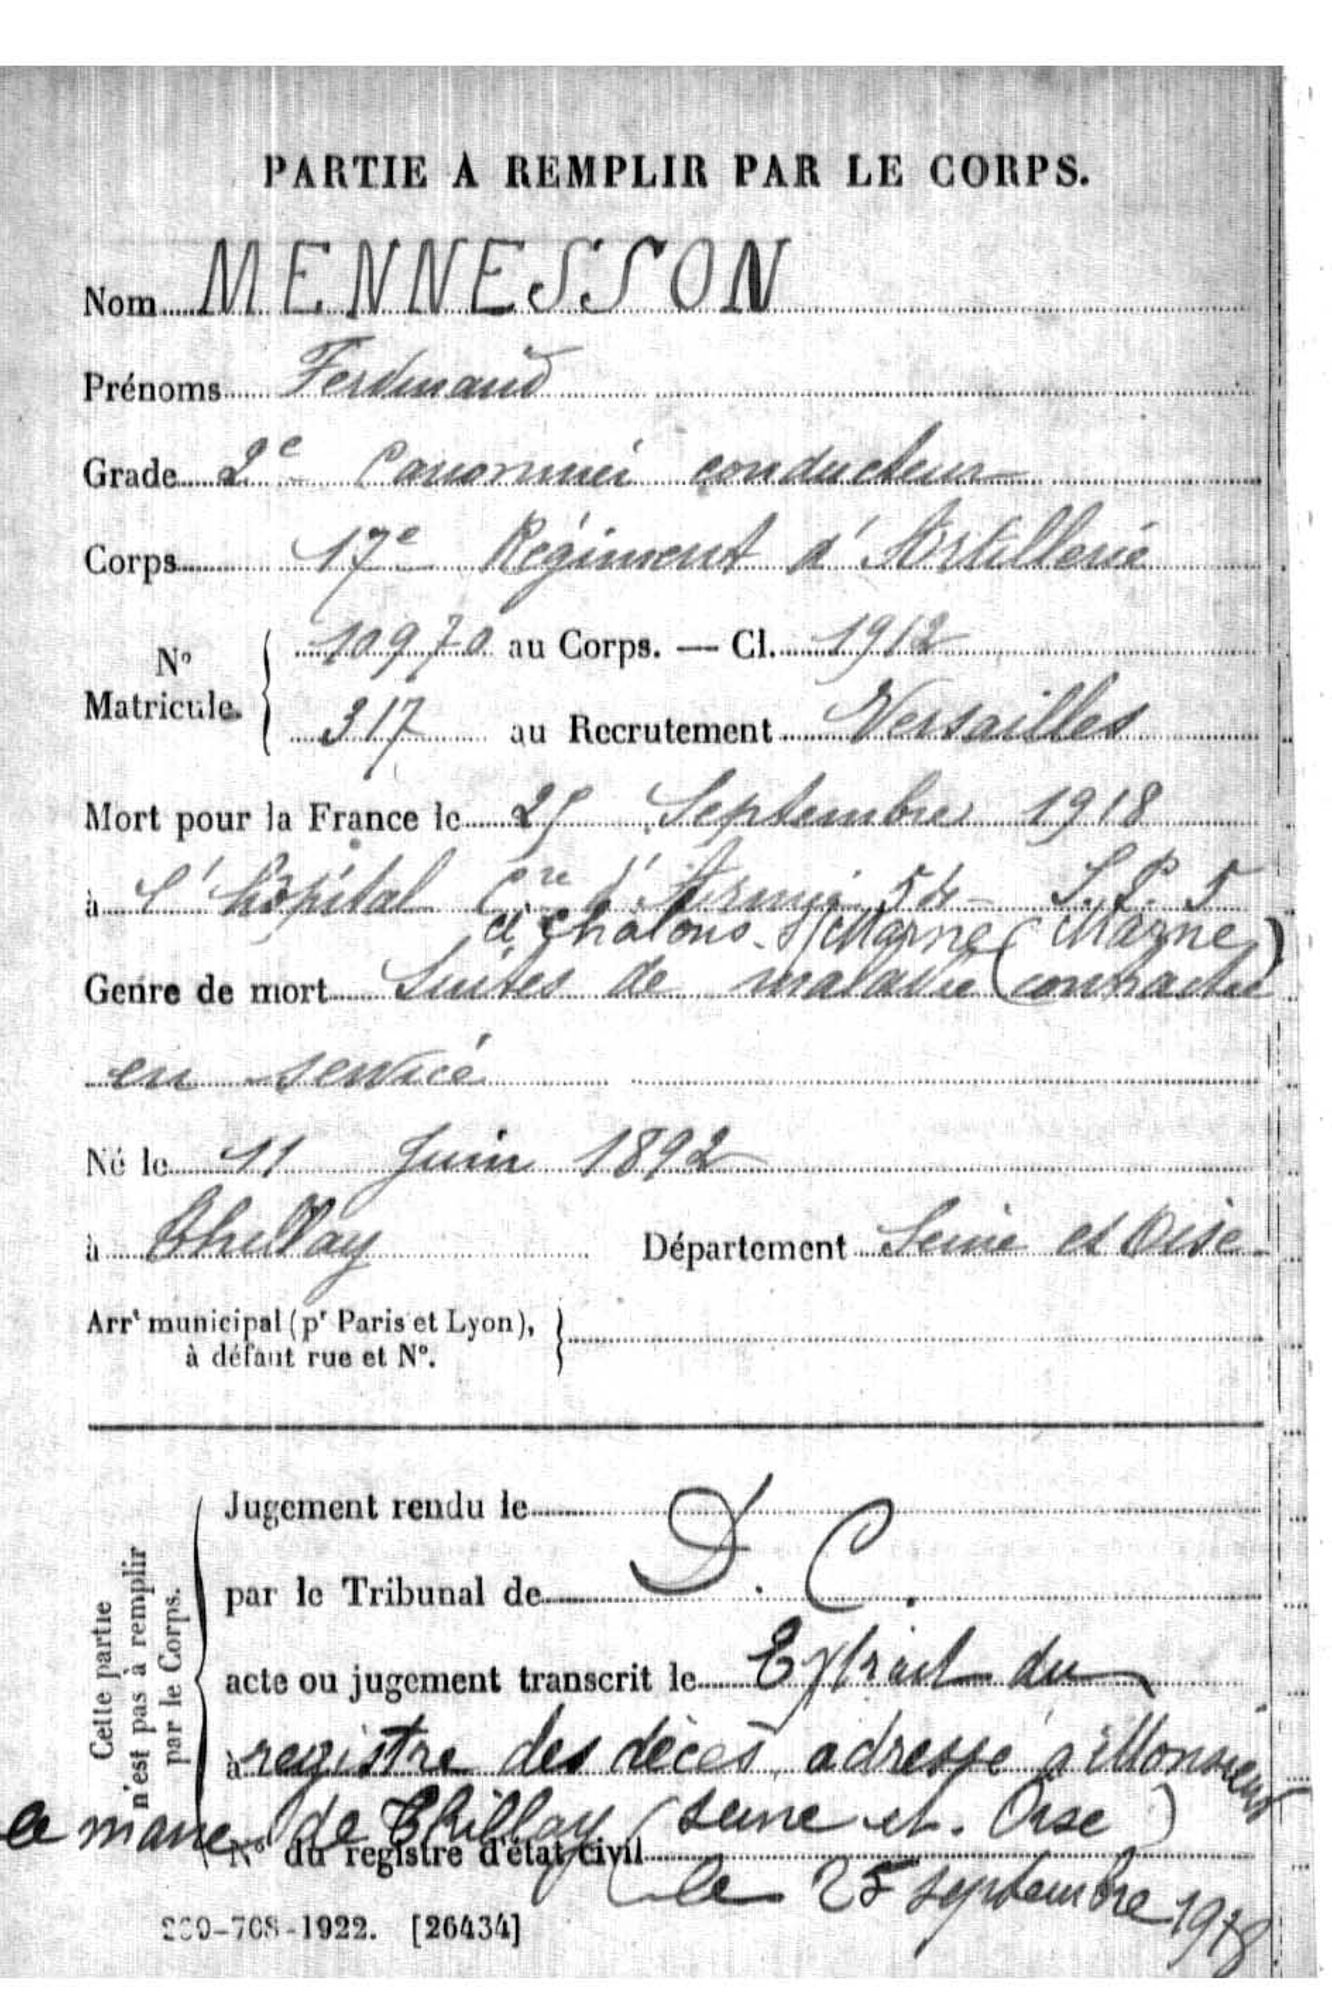 PARTIE À REMPLIR PAR LE CORPS.
Nom MENNESSON
Prénoms Ferdinand
Grade 2e Canonnier conducteur
Corps 17e Régiment d'Artillerie
No Matricule. 10970 au Corps. — Cl. 1912
317 au Recrutement Versailles
Mort pour la France le 25 Septembre 1918
à l'hôpital Cre d'Armée 54 - S.P. 5
à Châlons s/Marne (Marne)
Genre de mort Suites de maladie (contractée
en service
Né le 11 Juin 1892
à Thillay Département Seine et Oise
Arrt municipal (pr Paris et Lyon),
à défaut rue et No.
Cette partie
n'est pas à remplir
par le Corps.
Jugement rendu le
par le Tribunal de D. C.
acte ou jugement transcrit le Extrait du
à registre des décès adressé à Monsieur
le maire de Thillay (Seine et. Oise)
No du registre d'état civil
le 25 septembre 1918
-708-1922. [26434]